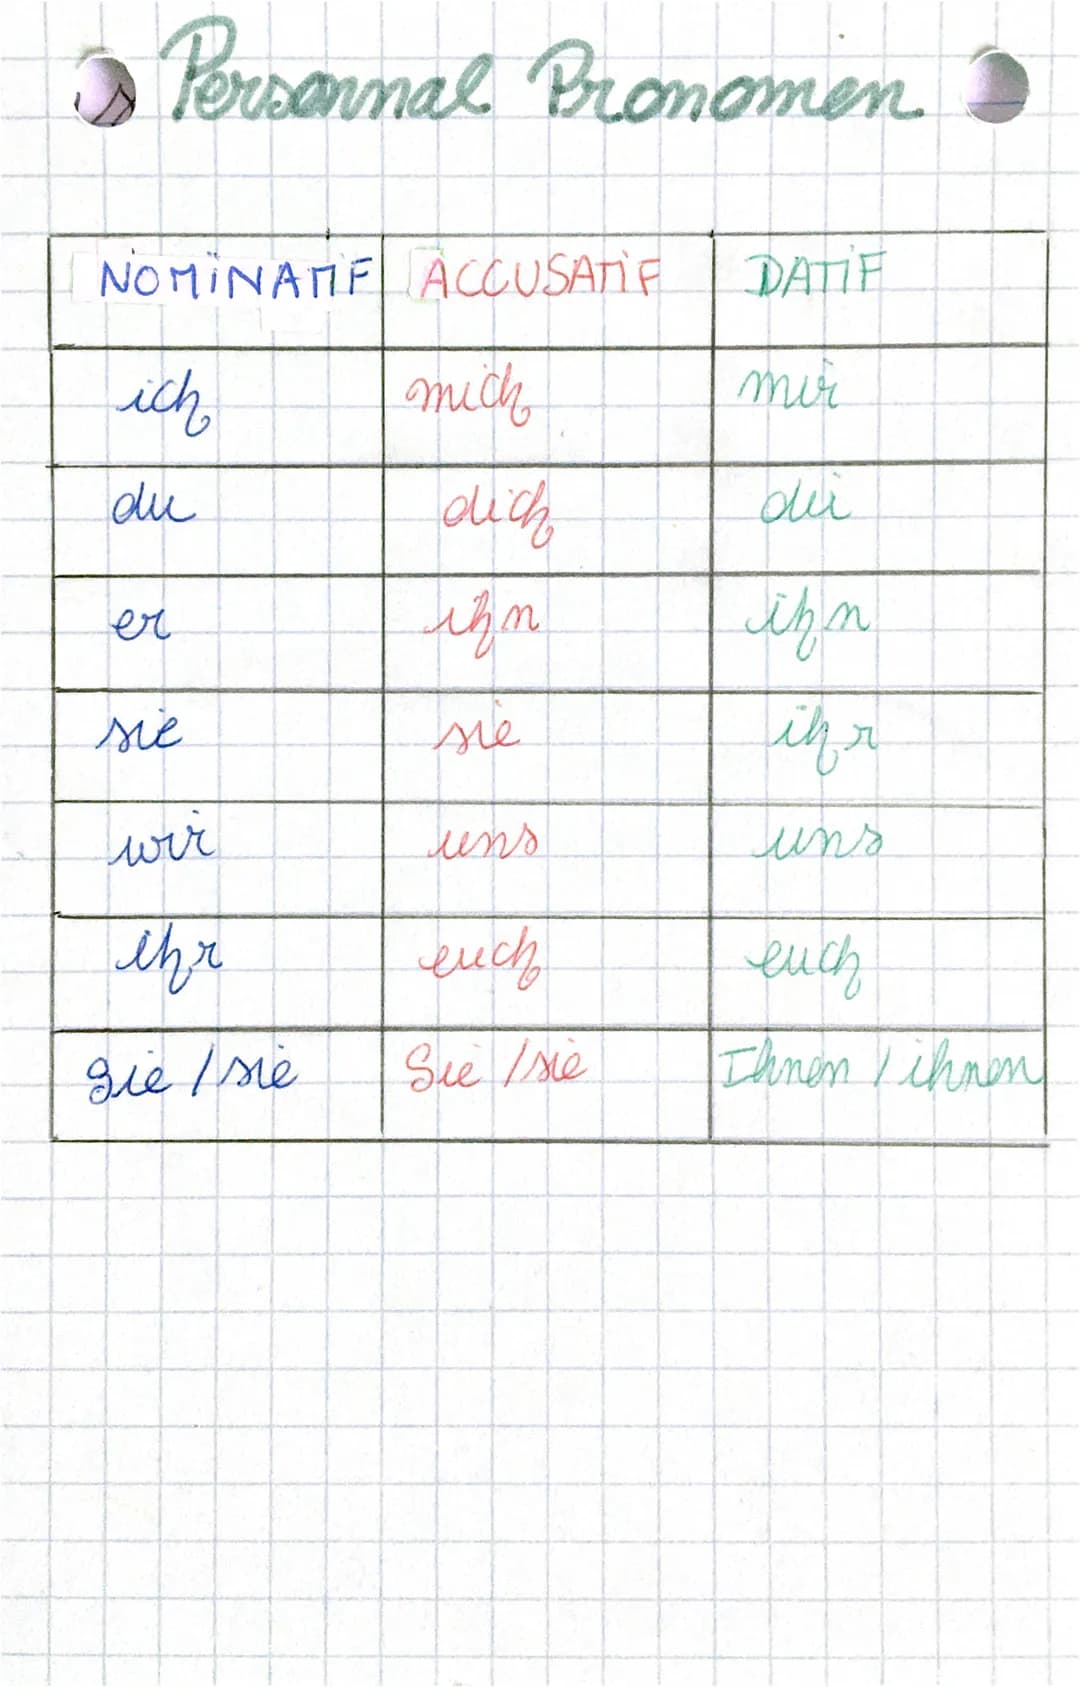 Personnal Pronomen
NOMINATIF ACCUSATIF DATIF
ich mich mir
du dich dir
er ihn ihn
sie sie ihr
wir uns uns
ihr euch euch
Sie / sie Sie / sie Ihnen / ihnen